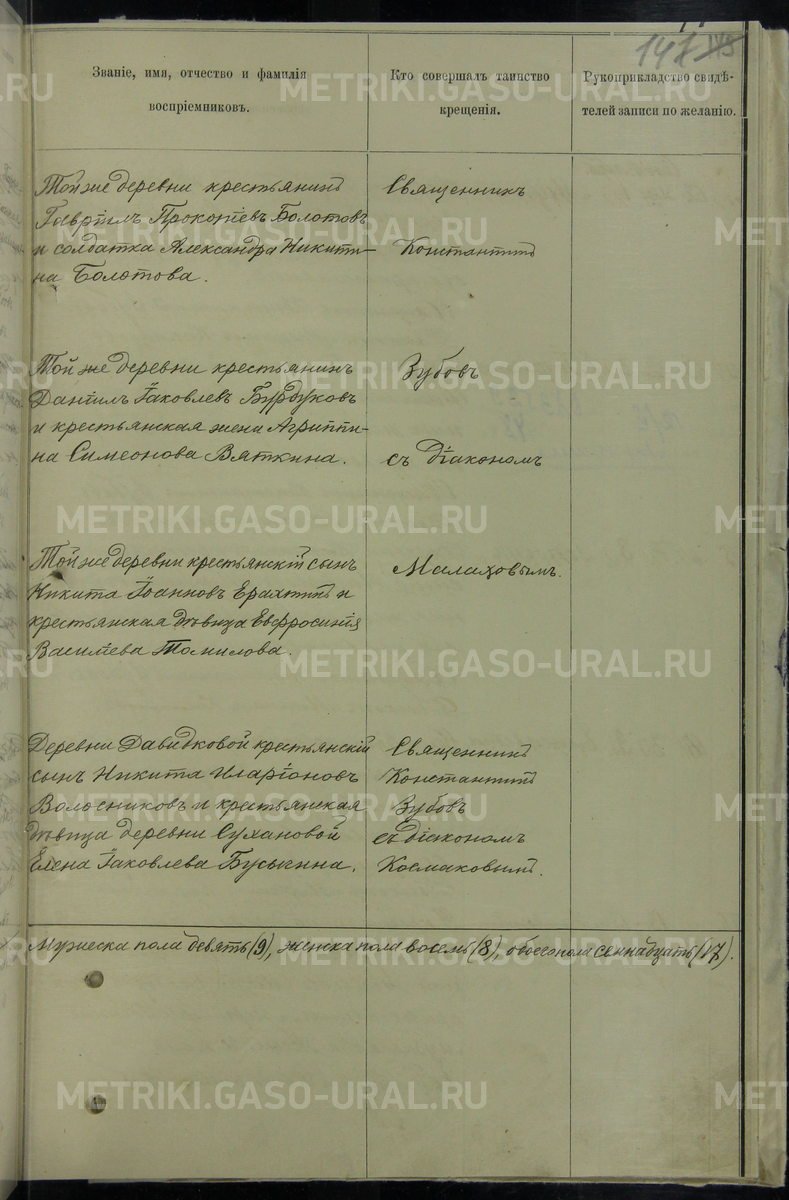 147 145
Званіе, имя, отчество и фамилія
воспріемниковъ.
Кто совершалъ таинство
крещенія.
Рукоприкладство свидѣ-
телей записи по желанію.
Той же деревни крестьянинъ
Гавріилъ Прокопіевъ Болотовъ
и солдатка Александра Никити-
на Болотова.
Священникъ
Константинъ
Той же деревни крестьянинъ
Даніилъ Іаковлевъ Бурдуковъ
и крестьянская жена Агриппи-
на Симеонова Вяткина.
Зубовъ
съ діакономъ
Той же деревни крестьянскій сынъ
Никита Іоанновъ Ерахтинъ и
крестьянская дѣвица Евфросинія
Василіева Томилова.
Малаховымъ.
Деревни Давидковой крестьянскій
сынъ Никита Иларіоновъ
Волосниковъ и крестьянская
дѣвица деревни Сухановой
Елена Іаковлева Бусыгина.
Священникъ
Константинъ
Зубовъ
съ діакономъ
Космаковымъ.
Мужеска пола девять (9), женска пола восемь (8), обоего пола семнадцать (17).
METRIKI.GASO-URAL.RU